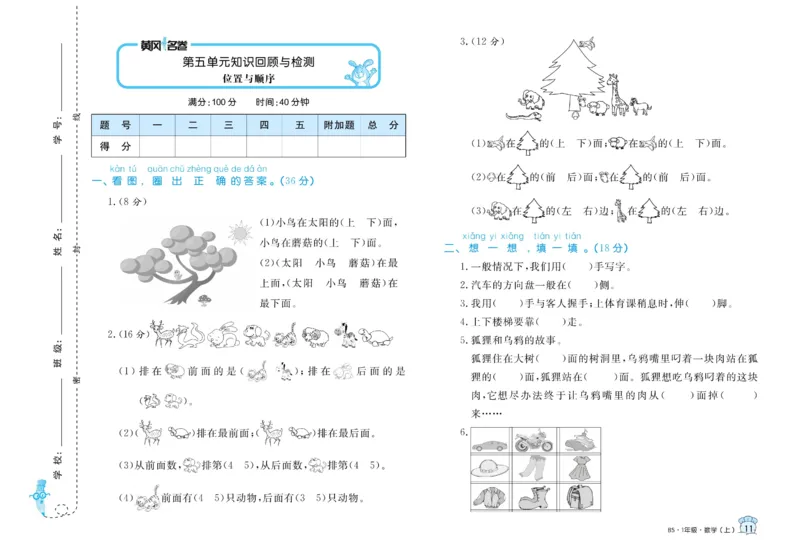 学校:
班级:
姓名:
学号:
密
封
线
黄冈名卷
第五单元知识回顾与检测
位置与顺序
满分:100分 时间:40分钟
题 号 一 二 三 四 五 附加题 总 分
得 分
kàn tú quān chū zhèng què de dá àn
一、看图,圈出正确的答案。(36分)
1.(8分)
(1)小鸟在太阳的(上 下)面,
小鸟在蘑菇的(上 下)面。
(2)(太阳 小鸟 蘑菇)在最
上面,(太阳 小鸟 蘑菇)在
最下面。
2.(16分)
(1)排在 前面的是( );排在 后面的是
( )。
(2)( )排在最前面;( )排在最后面。
(3)从前面数, 排第(4 5),从后面数, 排第(4 5)。
(4) 前面有(4 5)只动物,后面有(3 5)只动物。
3.(12分)
(1) 在 的(上 下)面; 在 的(上 下)面。
(2) 在 的(前 后)面; 在 的(前 后)面。
(3) 在 的(左 右)边; 在 的(左 右)边。
xiǎng yi xiǎng tián yi tián
二、想一想,填一填。(18分)
1.一般情况下,我们用( )手写字。
2.汽车的方向盘一般在( )侧。
3.我用( )手与客人握手;上体育课稍息时,伸( )脚。
4.上下楼梯要靠( )走。
5.狐狸和乌鸦的故事。
狐狸住在大树( )面的树洞里,乌鸦嘴里叼着一块肉站在狐
狸的( )面,狐狸站在( )面。狐狸想吃乌鸦叼着的这块
肉,它想尽办法终于让乌鸦嘴里的肉从( )面掉( )
来……
6.
BS·1年级·数学(上) 11